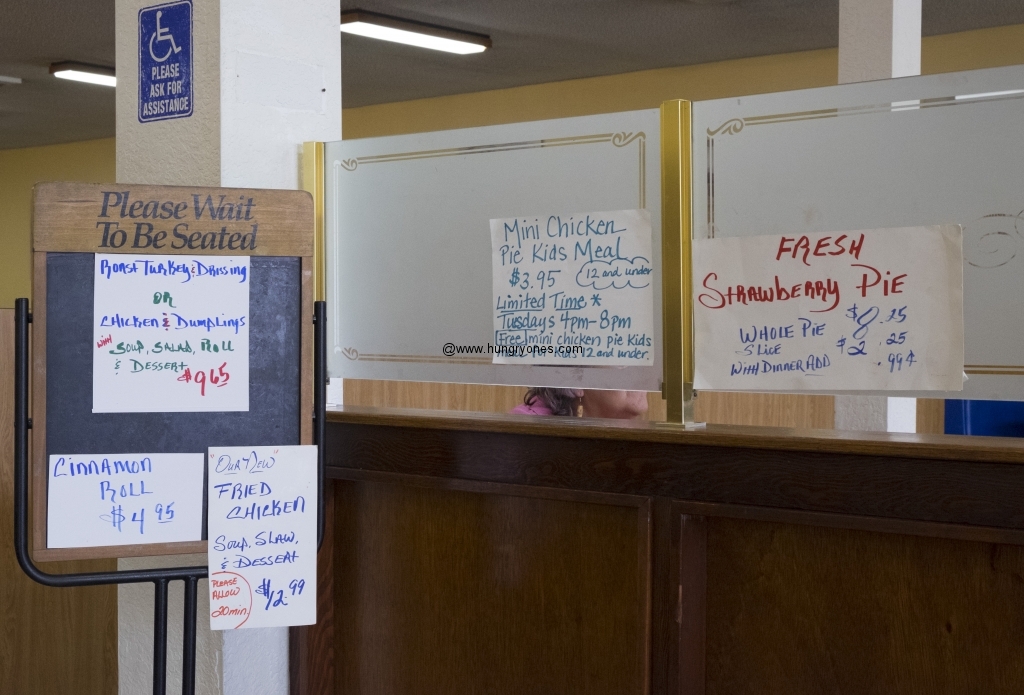 PLEASE
ASK FOR
ASSISTANCE
Please Wait
To Be Seated
ROAST TURKEY & DRESSING
OR
CHICKEN & DUMPLINGS
WITH SOUP, SALAD, ROLL
& DESSERT
$9.65
CINNAMON
ROLL
$4.95
"OUR NEW"
FRIED
CHICKEN
SOUP, SLAW,
& DESSERT
$12.99
PLEASE
ALLOW
20 min.
Mini Chicken
Pie Kids Meal
$3.95 12 and under
Limited Time *
Tuesdays 4pm-8pm
Free mini chicken pie kids
for kids 12 and under.
@www.hungryones.com
FRESH
STRAWBERRY PIE
WHOLE PIE $8.25
SLICE $2.25
WITH DINNER ADD .99¢